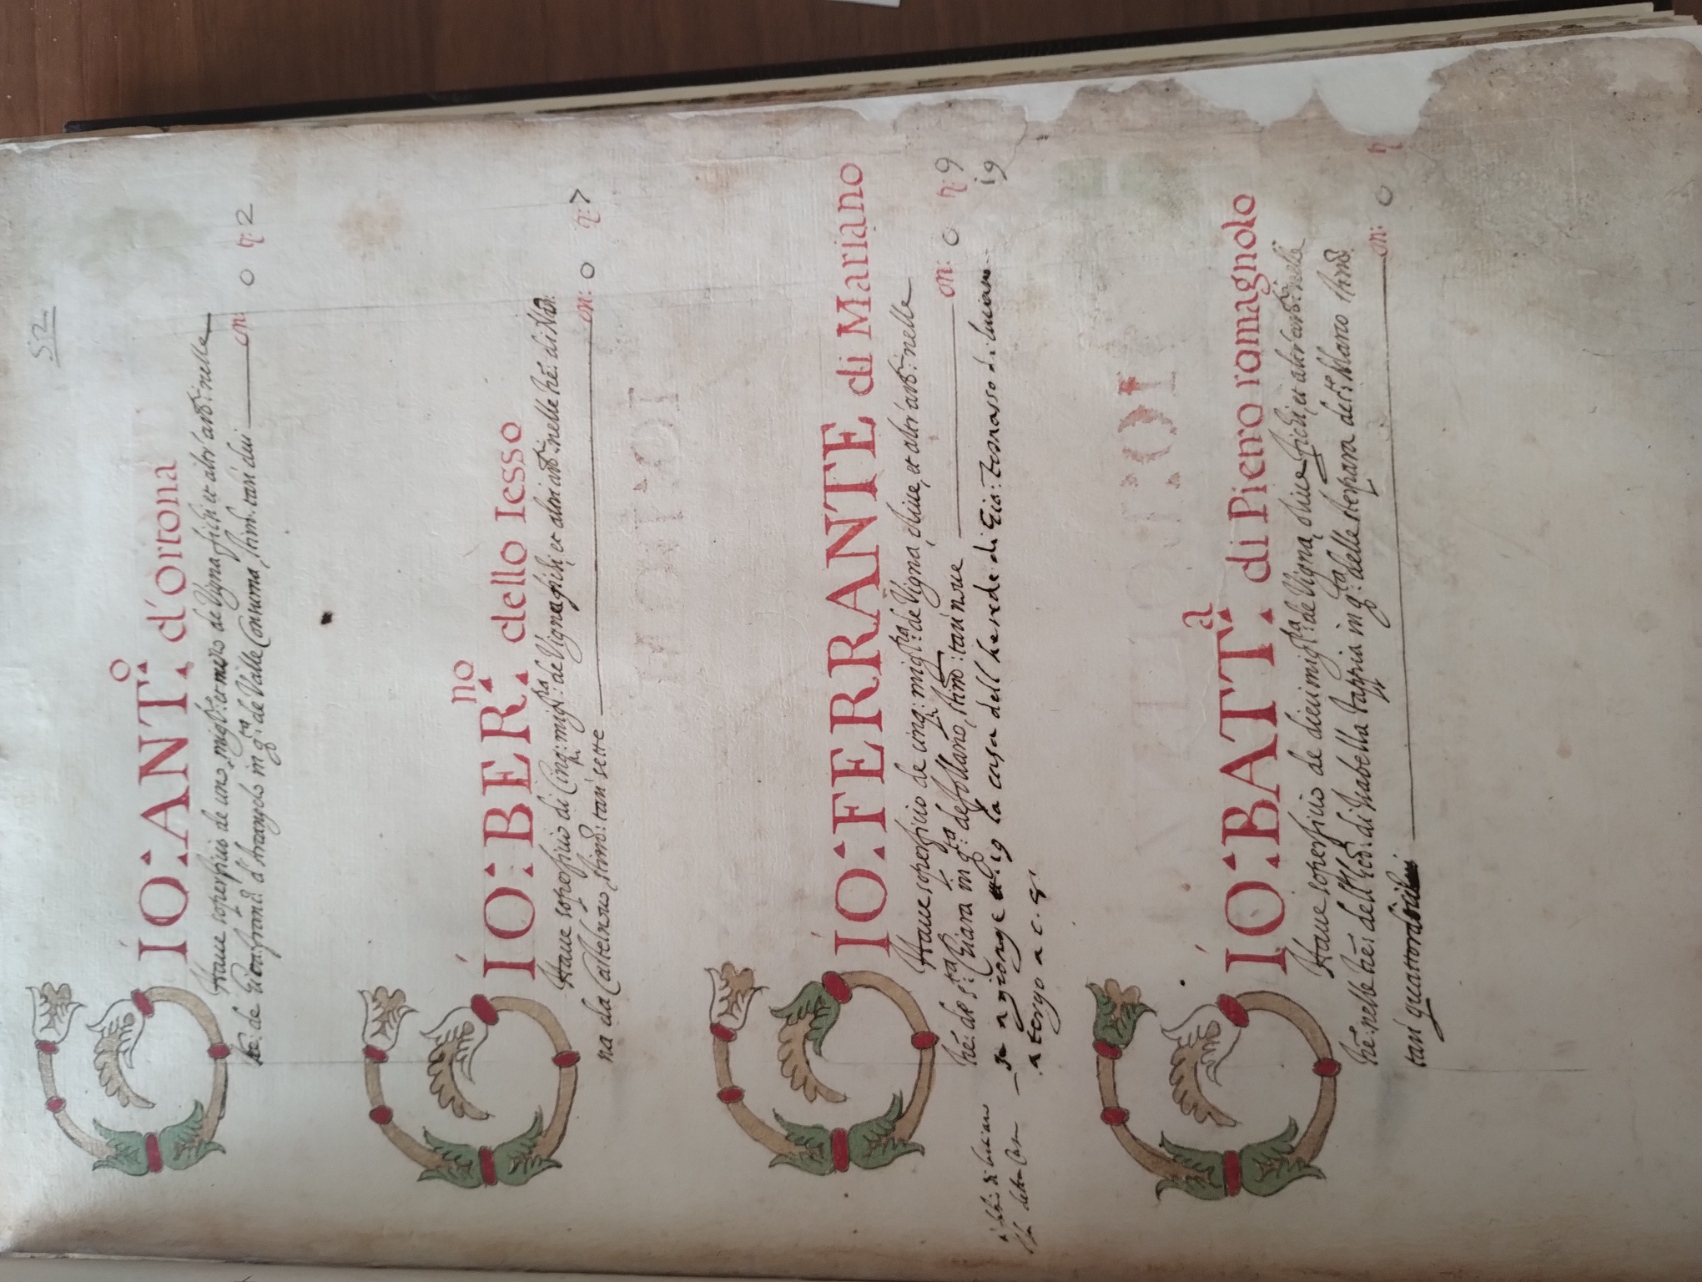 52
GIO: ANT:o d'Ortona
Haue soperficio de uno migl:ro et mezo de Vigna fichi et altr'arb:i nelle
he: de Gioa:franc:o d'Arcangelo in q:ta de Valle Consuma, stim: tari dui on: 0 tr: 2
GIO: BER:no dello Iesso
Haue soperficio di Cinq: migl:ra de Vigna fichi, et altri arb:i nelle he: di
na da Castelnouo, stimo: tari sette on: 0 tr: 7
GIO: FERRANTE di Mariano
Haue soperficio de cinq: migl:ra de Vigna, oliue, et altr'arb:i nelle
he: de s:ta Chiara in q:ta de follano, stimo: tari noue on: 0 tr: 9
Se agionge 19 la casa dell herede di Gio: Tomasso di luciano 19
a tergo a c. 8
detta Casa
GIO: BATT:a di Pietro romagnolo
Haue soperficio de dieci migl:ra de Vigna, oliue, fichi, et altr'arb:i nelle
he: nelle he: dell'hed: di Isabella tappia in q:ta delle sterpara de s:to Marco stimo:
tari quattordici on: 0 tr